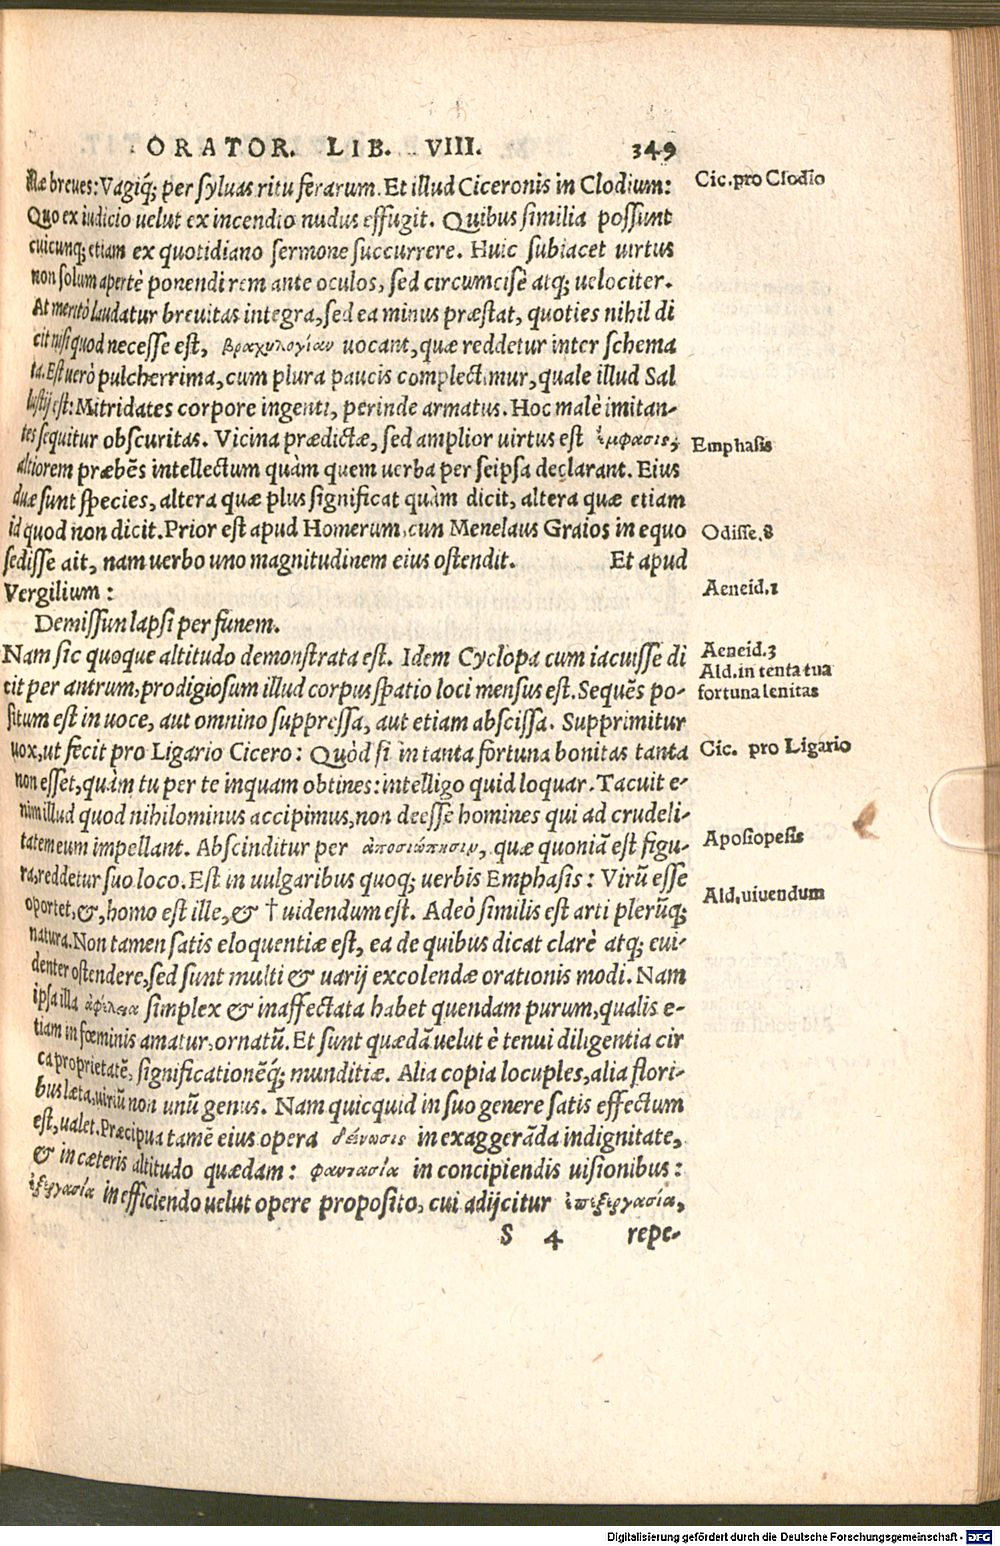 ORATOR. LIB. VIII. 349
llæ breues: Vagiq́; per syluas ritu ferarum. Et illud Ciceronis in Clodium:
Cic. pro Clodio
Quo ex iudicio uelut ex incendio nudus effugit. Quibus similia possunt
cuicunq; etiam ex quotidiano sermone succurrere. Huic subiacet uirtus
non solum apertè ponendi rem ante oculos, sed circumcisè atq; uelociter.
At meritò laudatur breuitas integra, sed ea minus præstat, quoties nihil di
cit nisi quod necesse est, βραχυλογίαν uocant, quæ reddetur inter schema
ta. Est uerò pulcherrima, cum plura paucis complectimur, quale illud Sal
lustij est: Mitridates corpore ingenti, perinde armatus. Hoc malè imitan-
tes sequitur obscuritas. Vicina prædictæ, sed amplior uirtus est ἔμφασις,
Emphasis
altiorem præbẽs intellectum quàm quem uerba per seipsa declarant. Eius
duæ sunt species, altera quæ plus significat quàm dicit, altera quæ etiam
id quod non dicit. Prior est apud Homerum, cun Menelaus Graios in equo
Odisse. 8
sedisse ait, nam uerbo uno magnitudinem eius ostendit. Et apud
Vergilium:
Aeneid. 1
Demissun lapsi per funem.
Nam sic quoque altitudo demonstrata est. Idem Cyclopa cum iacuisse di
Aeneid. 3
Ald. in tenta tua
cit per antrum, prodigiosum illud corpus spatio loci mensus est. Sequẽs po-
fortuna lenitas
situm est in uoce, aut omnino suppressa, aut etiam abscissa. Supprimitur
uox, ut fecit pro Ligario Cicero: Quòd si in tanta fortuna bonitas tanta
Cic. pro Ligario
non esset, quàm tu per te inquam obtines: intelligo quid loquar. Tacuit e-
nim illud quod nihilominus accipimus, non deesse homines qui ad crudeli-
tatem eum impellant. Abscinditur per ἀποσιώπησιν, quæ quoniã est figu-
Aposiopesis
ra, reddetur suo loco. Est in uulgaribus quoq; uerbis Emphasis: Virũ esse
oportet, &, homo est ille, & † uidendum est. Adeò similis est arti plerũq;
Ald. uiuendum
natura. Non tamen satis eloquentiæ est, ea de quibus dicat clarè atq; eui-
denter ostendere, sed sunt multi & uarij excolendæ orationis modi. Nam
ipsa illa ἀφέλεια simplex & inaffectata habet quendam purum, qualis e-
tiam in fœminis amatur, ornatũ. Et sunt quædã uelut è tenui diligentia cir
ca proprietatẽ, significationẽq́; munditiæ. Alia copia locuples, alia flori-
bus læta, uiriũ non unũ genus. Nam quicquid in suo genere satis effectum
est, ualet. Præcipua tamẽ eius opera δείνωσις in exaggerãda indignitate,
& in cæteris altitudo quædam: φαντασία in concipiendis uisionibus:
ἐξεργασία in efficiendo uelut opere proposito, cui adijcitur ἐπεξεργασία,
S 4 repe-
Digitalisierung gefördert durch die Deutsche Forschungsgemeinschaft - DFG